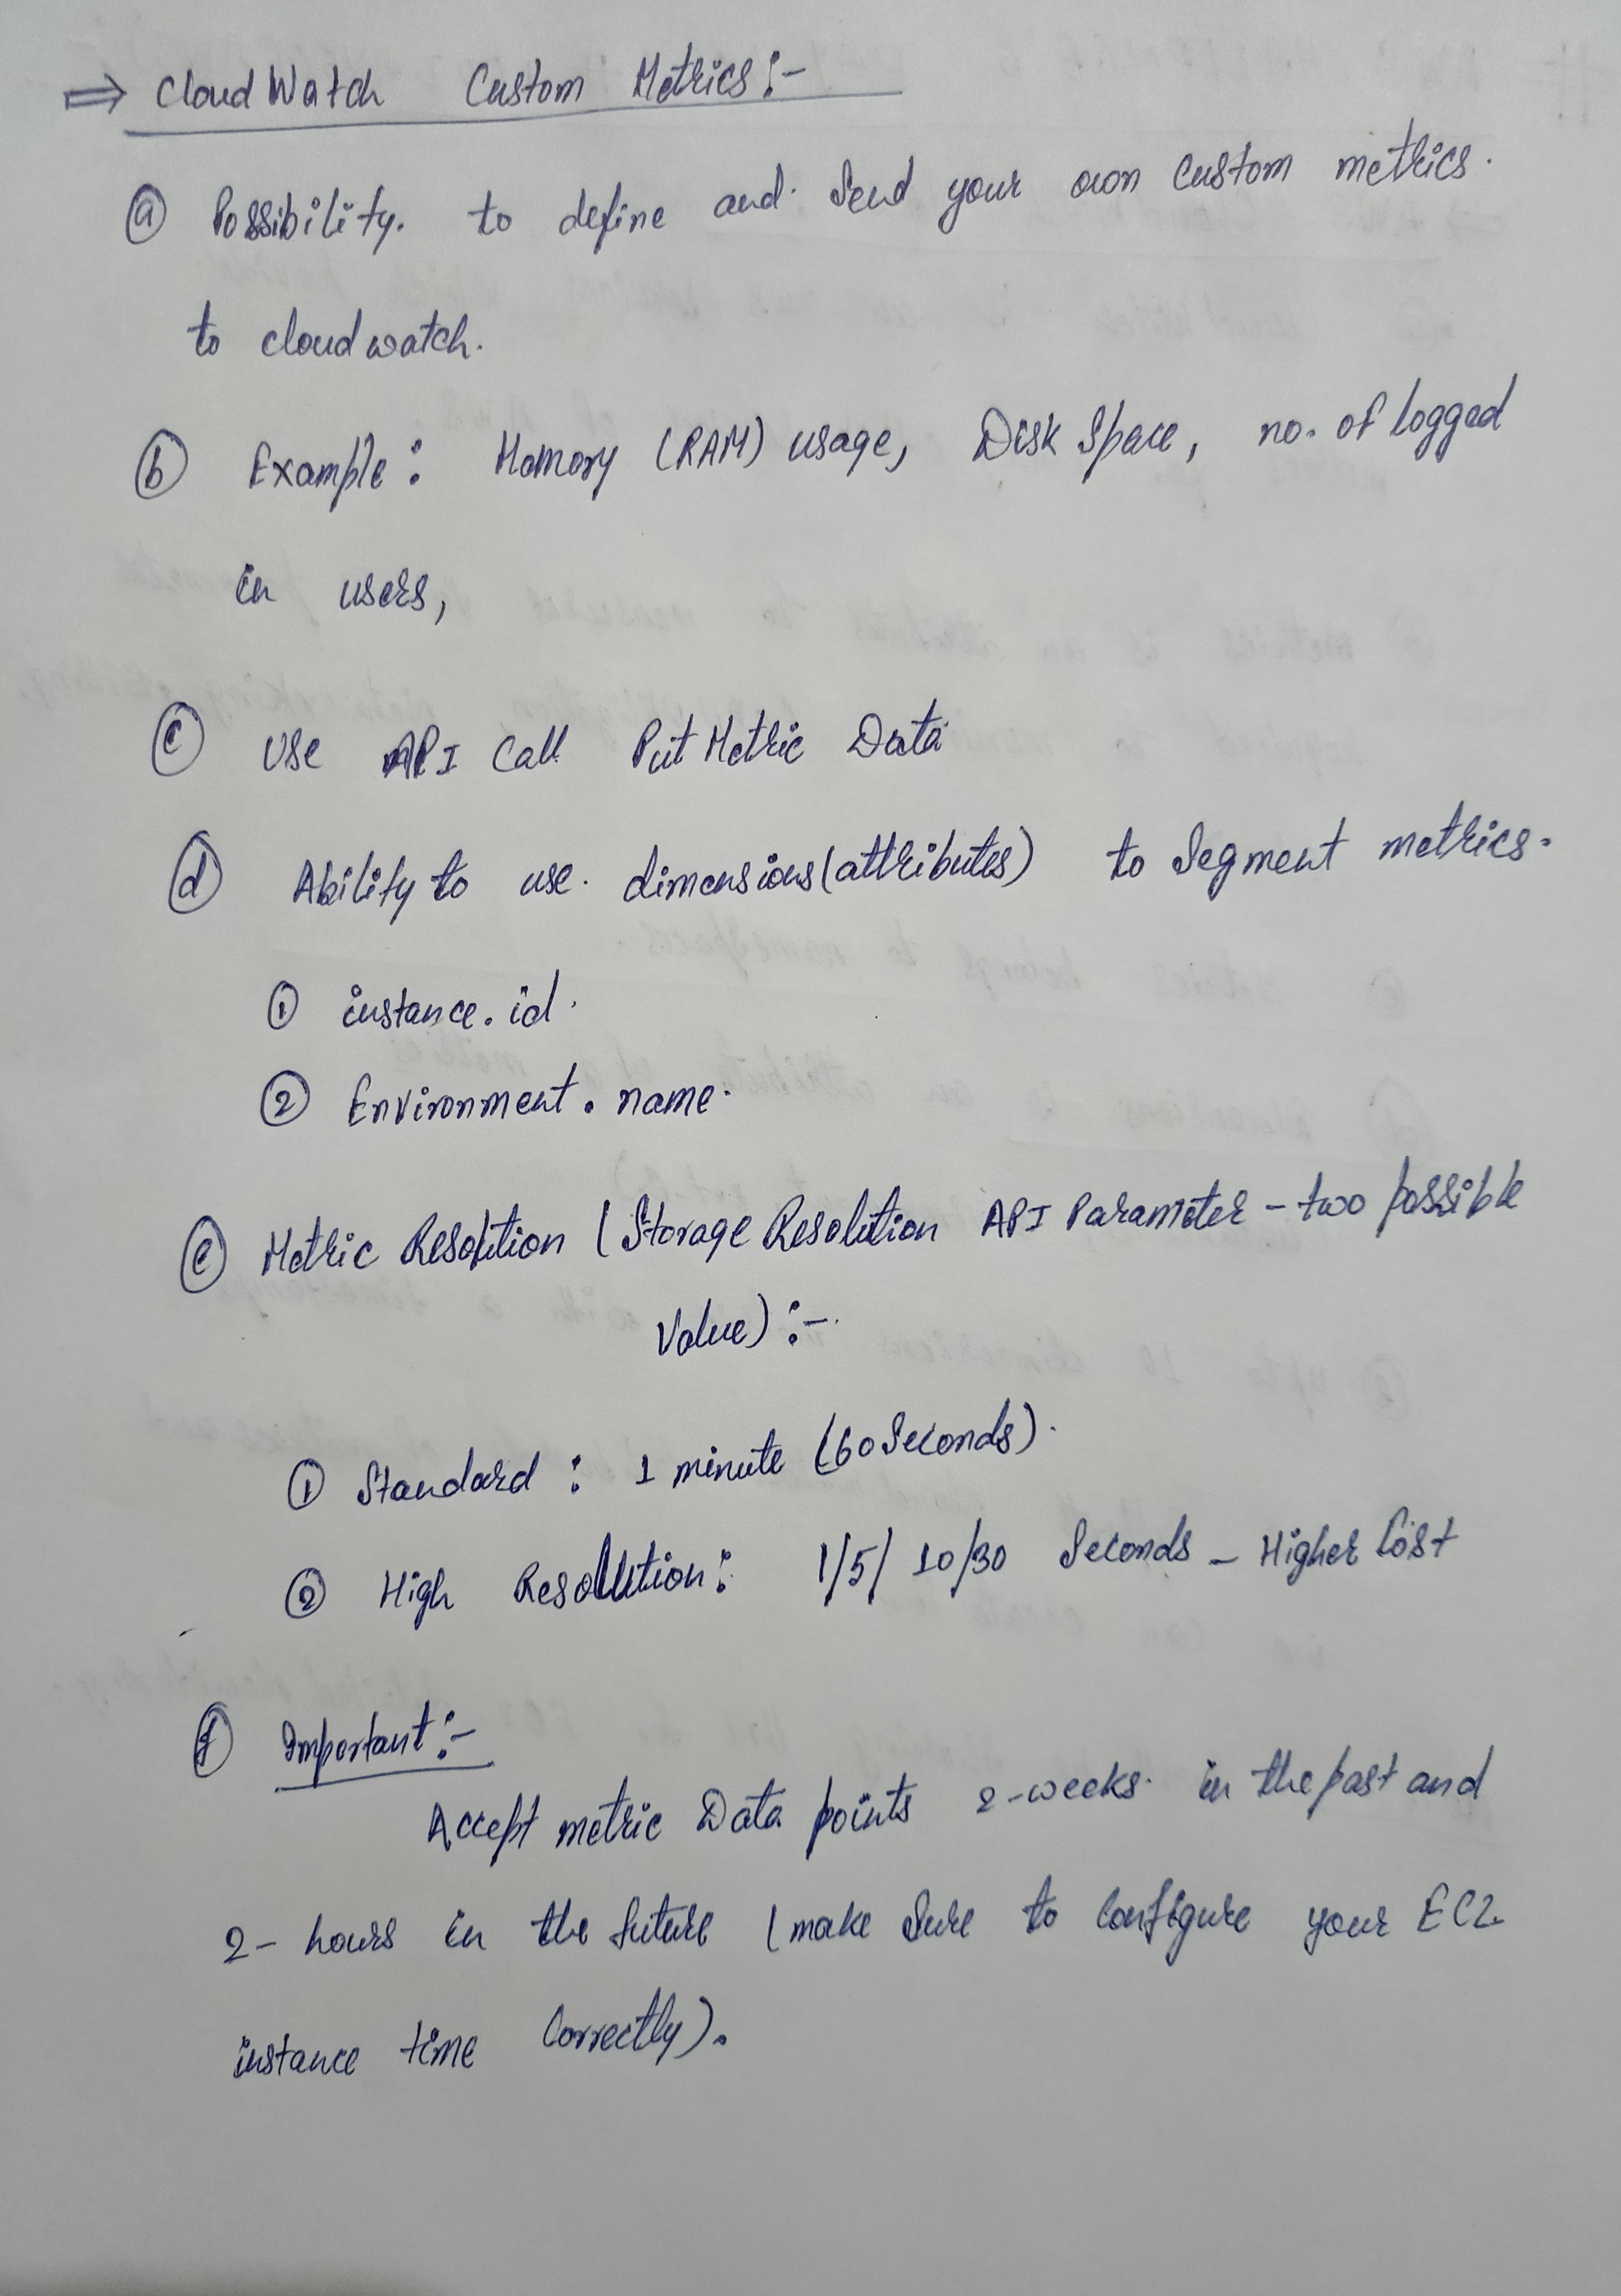 ⇒ CloudWatch Custom Metrics:-
ⓐ Possibility. to define and. Send your own Custom metrics.
to cloudwatch.
ⓑ Example: Memory (RAM) usage, Disk Space, no. of logged
in users,
ⓒ Use API Call Put Metric Data
ⓓ Ability to use. dimensions (attributes) to Segment metrics.
① instance.id.
② Environment.name.
ⓔ Metric Resolution (Storage Resolution API Parameter - two possible
Value):-
① Standard: 1 minute (60 Seconds).
② High Resolution: 1/5/10/30 Seconds - Higher Cost
ⓕ Important:-
Accept metric Data points 2-weeks. in the past and
2- hours in the future (make Sure to Configure your EC2
instance time Correctly).